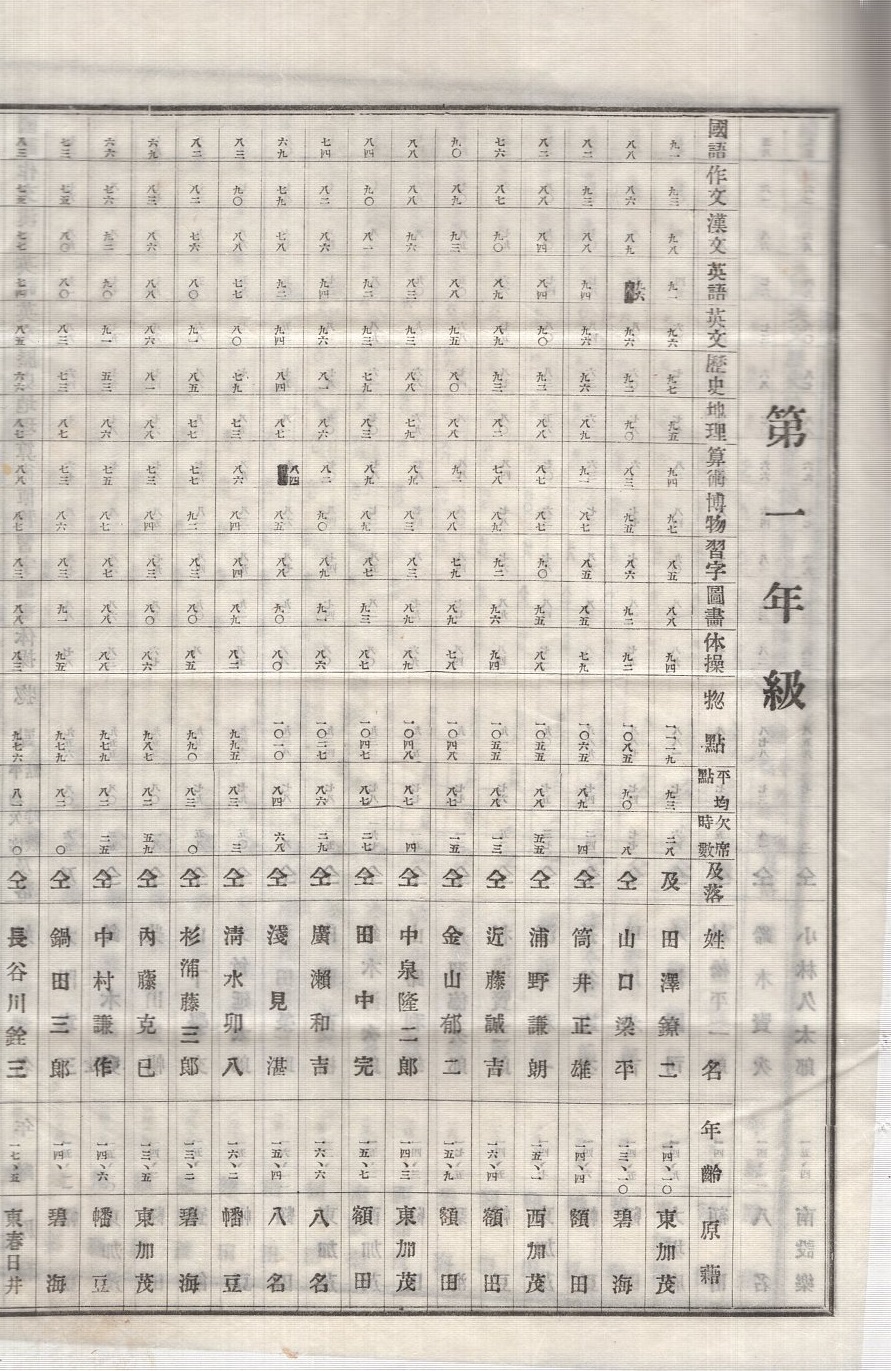 第一年級
國語 作文 漢文 英語 英文 歷史 地理 算術 博物 習字 圖畫 体操 惣點 平均點 欠席時數 及落 姓名 年齡 原籍
九一 九三 九八 九一 九六 九七 九五 九四 九七 八五 八八 九四 一一一九 九三 二八 及 田澤鐐二 一四、一〇 東加茂
八八 八六 八九 九六 九二 九〇 八三 九五 八六 九二 九二 一〇八五 九〇 八 仝 山口梁平 一三、一〇 碧海
八二 九三 八八 九四 九六 九六 八九 九一 八七 八五 八五 七九 一〇六五 八九 四 仝 筒井正雄 一四、四 額田
八二 八八 八四 八四 九〇 九二 八八 八七 八七 九〇 九五 八八 一〇五五 八八 五五 仝 浦野謙朗 一五、一 西加茂
七六 八七 九〇 八九 八九 九三 八二 七八 八九 九二 九六 九四 一〇五五 八八 一三 仝 近藤誠吉 一六、四 額田
九〇 八九 九三 八八 九五 八〇 八八 九二 八八 七九 八九 七八 一〇四八 八七 一五 仝 金山郁二 一五、九 額田
八八 八八 九六 八三 九三 八八 七九 八九 八三 八三 八九 八九 一〇四八 八七 一四 仝 中泉隆二郎 一四、三 東加茂
八四 九〇 八一 九二 九三 七九 八三 八九 八九 八七 九三 八七 一〇四七 八七 二七 仝 田中完 一五、七 額田
七四 八二 八六 九四 九六 八一 八六 八二 九〇 八九 九一 八六 一〇二七 八六 二九 仝 廣瀨和吉 一六、六 八名
六九 七九 七八 九二 九四 八四 八七 八四 八五 八八 九〇 八〇 一〇一〇 八四 六八 仝 淺見湛 一五、四 八名
八三 九〇 八八 七七 八〇 七九 七三 八六 八四 八四 八九 八二 九九五 八三 三 仝 淸水卯八 一六、二 幡豆
八二 八二 七六 八〇 九一 八五 七七 七七 九二 八三 八〇 八五 九九〇 八三 〇 仝 杉浦藤三郎 一三、二 碧海
六九 八三 八六 八八 八六 八一 八八 七三 八四 八三 八〇 八六 九八七 八二 五九 仝 內藤克巳 一三、五 東加茂
六六 七六 九二 九〇 九一 五三 八六 七五 八七 八七 八八 八八 九七九 八二 二五 仝 中村謙作 一四、六 幡豆
七三 七五 八〇 八〇 八三 七三 八七 七三 八六 八三 九一 九五 九七九 八二 〇 仝 鍋田三郎 一四、 碧海
八三 七五 七七 七四 八五 六六 八七 八八 八七 八三 八八 八三 九七六 八一 〇 仝 長谷川銓三 一七、五 東春日井